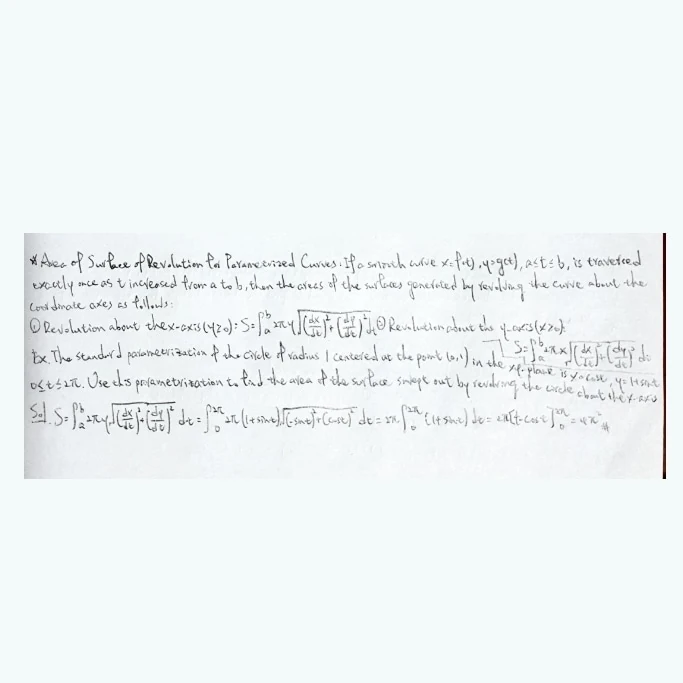 * Area of Surface of Revolution for Parametrized Curves: If a smooth curve x=f(t), y=g(t), a≤t≤b, is traversed
exactly once as t increased from a to b, then the areas of the surfaces generated by revolving the curve about the
coordinate axes as follows:
① Revolution about the x-axis (y≥0): S=∫ₐᵇ 2πy√((dx/dt)²+(dy/dt)²) dt ② Revolution about the y-axis (x≥0):
S=∫ₐᵇ 2πx√((dx/dt)²+(dy/dt)²) dt
Ex. The standard parametrization of the circle of radius 1 centered at the point (0,1) in the xy-plane is x=cost, y=1+sint
0≤t≤2π. Use this parametrization to find the area of the surface swept out by revolving the circle about the x-axis
Sol. S=∫ₐᵇ 2πy√((dx/dt)²+(dy/dt)²) dt = ∫₀²ᵖⁱ 2π(1+sint)√((-sint)²+(cost)²) dt = 2π∫₀²ᵖⁱ (1+sint) dt = 2π[t-cost]₀²ᵖⁱ = 4π² #